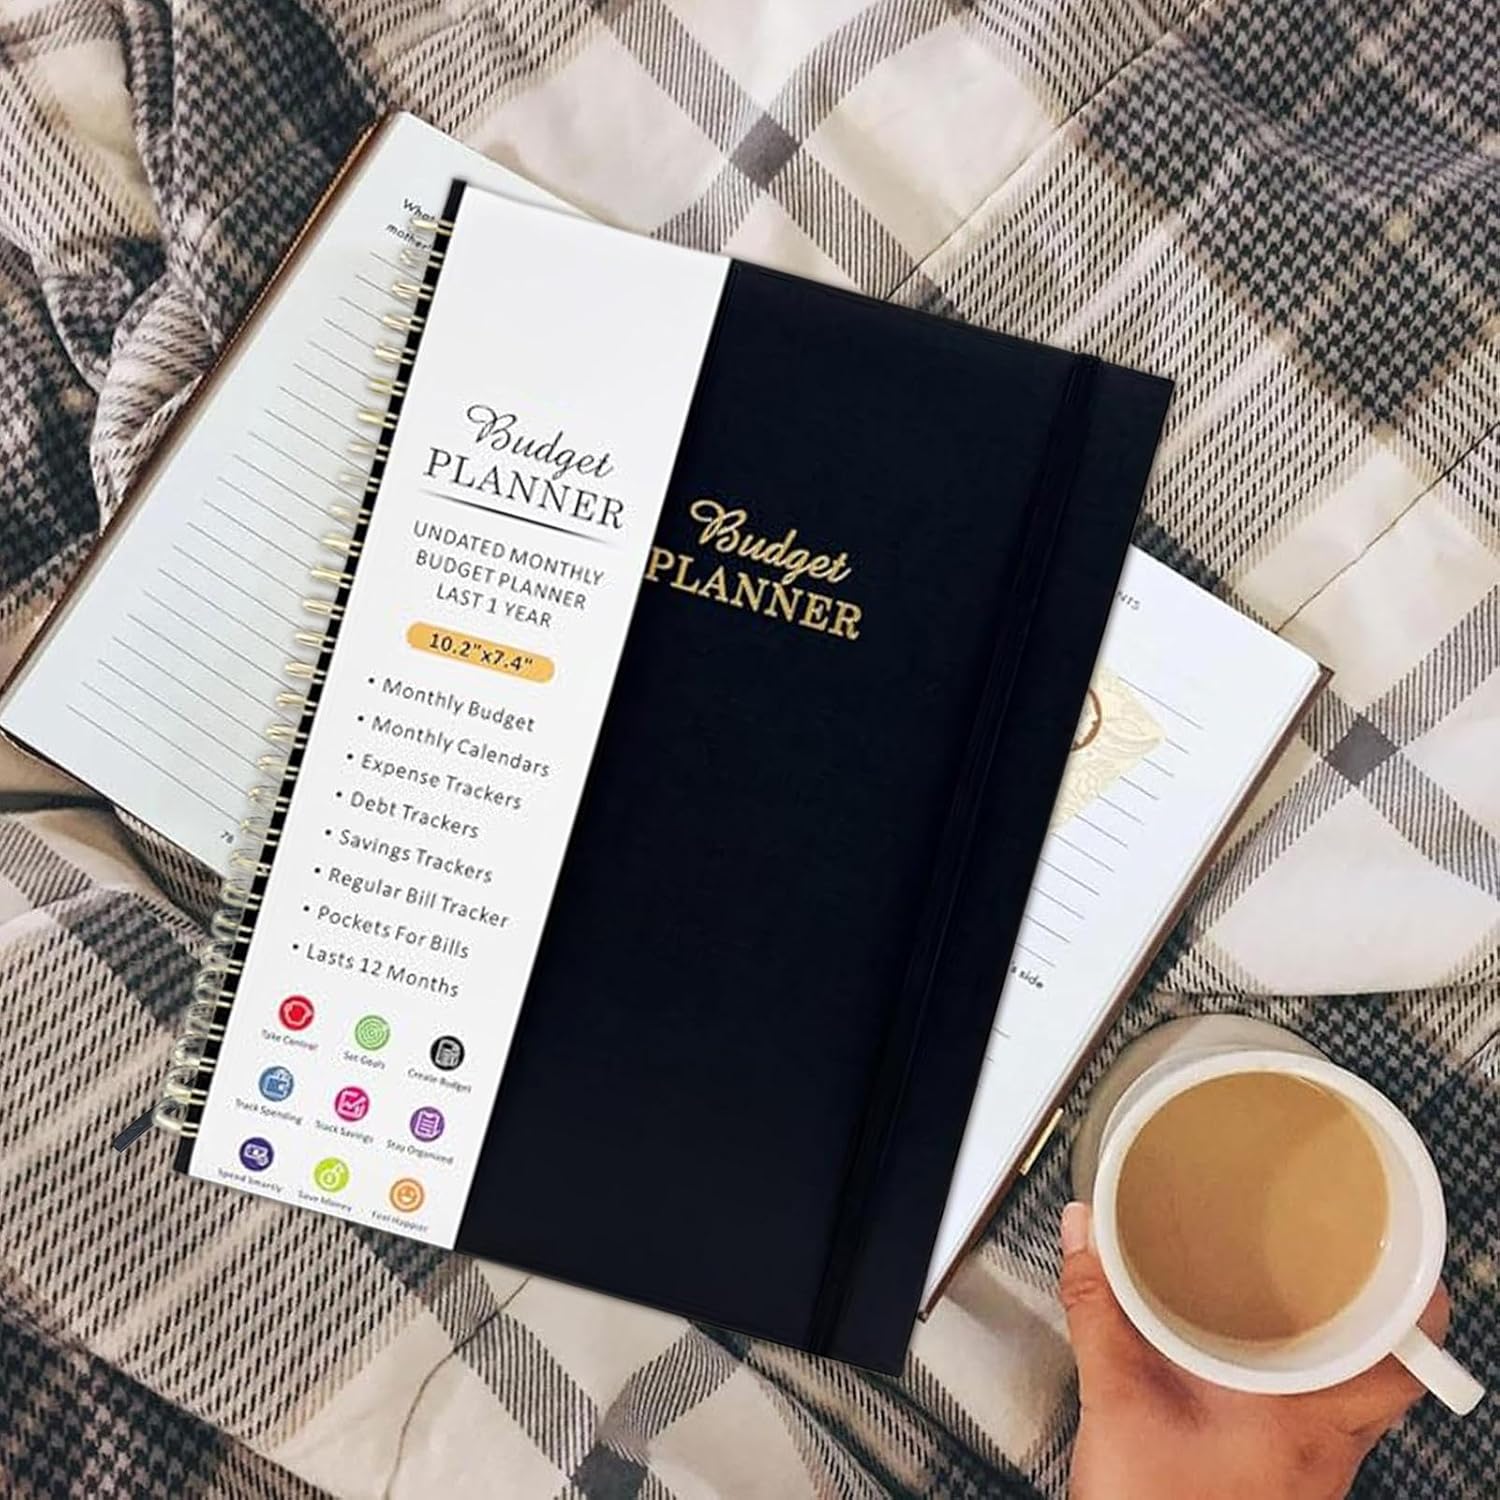 What
mother
Budget
PLANNER
UNDATED MONTHLY
BUDGET PLANNER
LAST 1 YEAR
10.2"x7.4"
• Monthly Budget
• Monthly Calendars
• Expense Trackers
• Debt Trackers
• Savings Trackers
• Regular Bill Tracker
• Pockets For Bills
• Lasts 12 Months
Take Control
Set Goals
Create Budget
Track Spending
Track Savings
Stay Organized
Spend Smartly
Save Money
Feel Happier
Budget
PLANNER
78
side